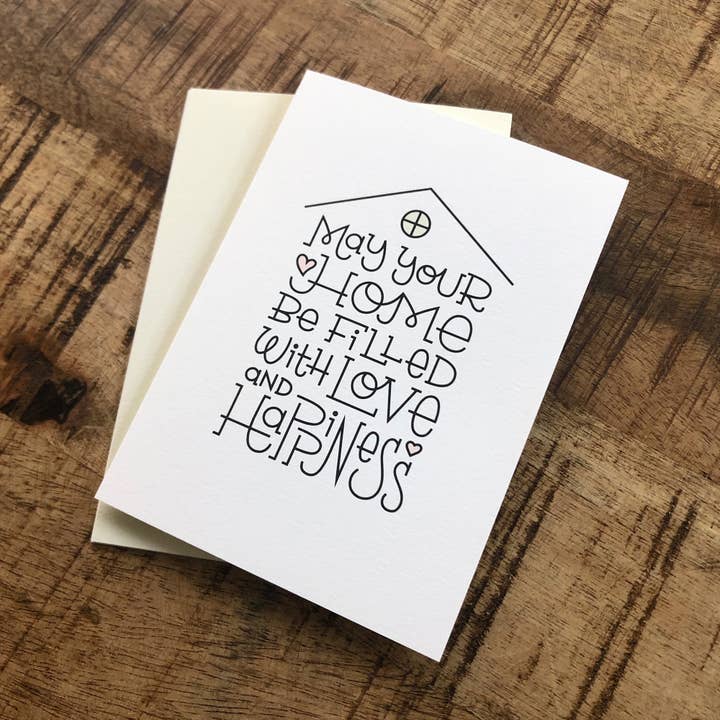 May your
Home
Be Filled
With Love
and
Happiness